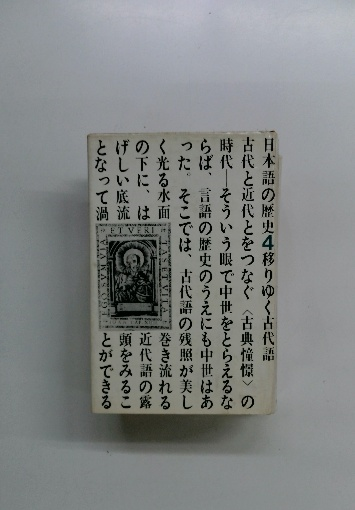 日本語の歴史4移りゆく古代語
古代と近代とをつなぐ〈古典憧憬〉の
時代―そういう眼で中世をとらえるな
らば、言語の歴史のうえにも中世はあ
った。そこでは、古代語の残照が美し
く光る水面
巻き流れる
の下に、は
近代語の露
げしい底流
頭をみるこ
となって渦
とができる
ET VERI